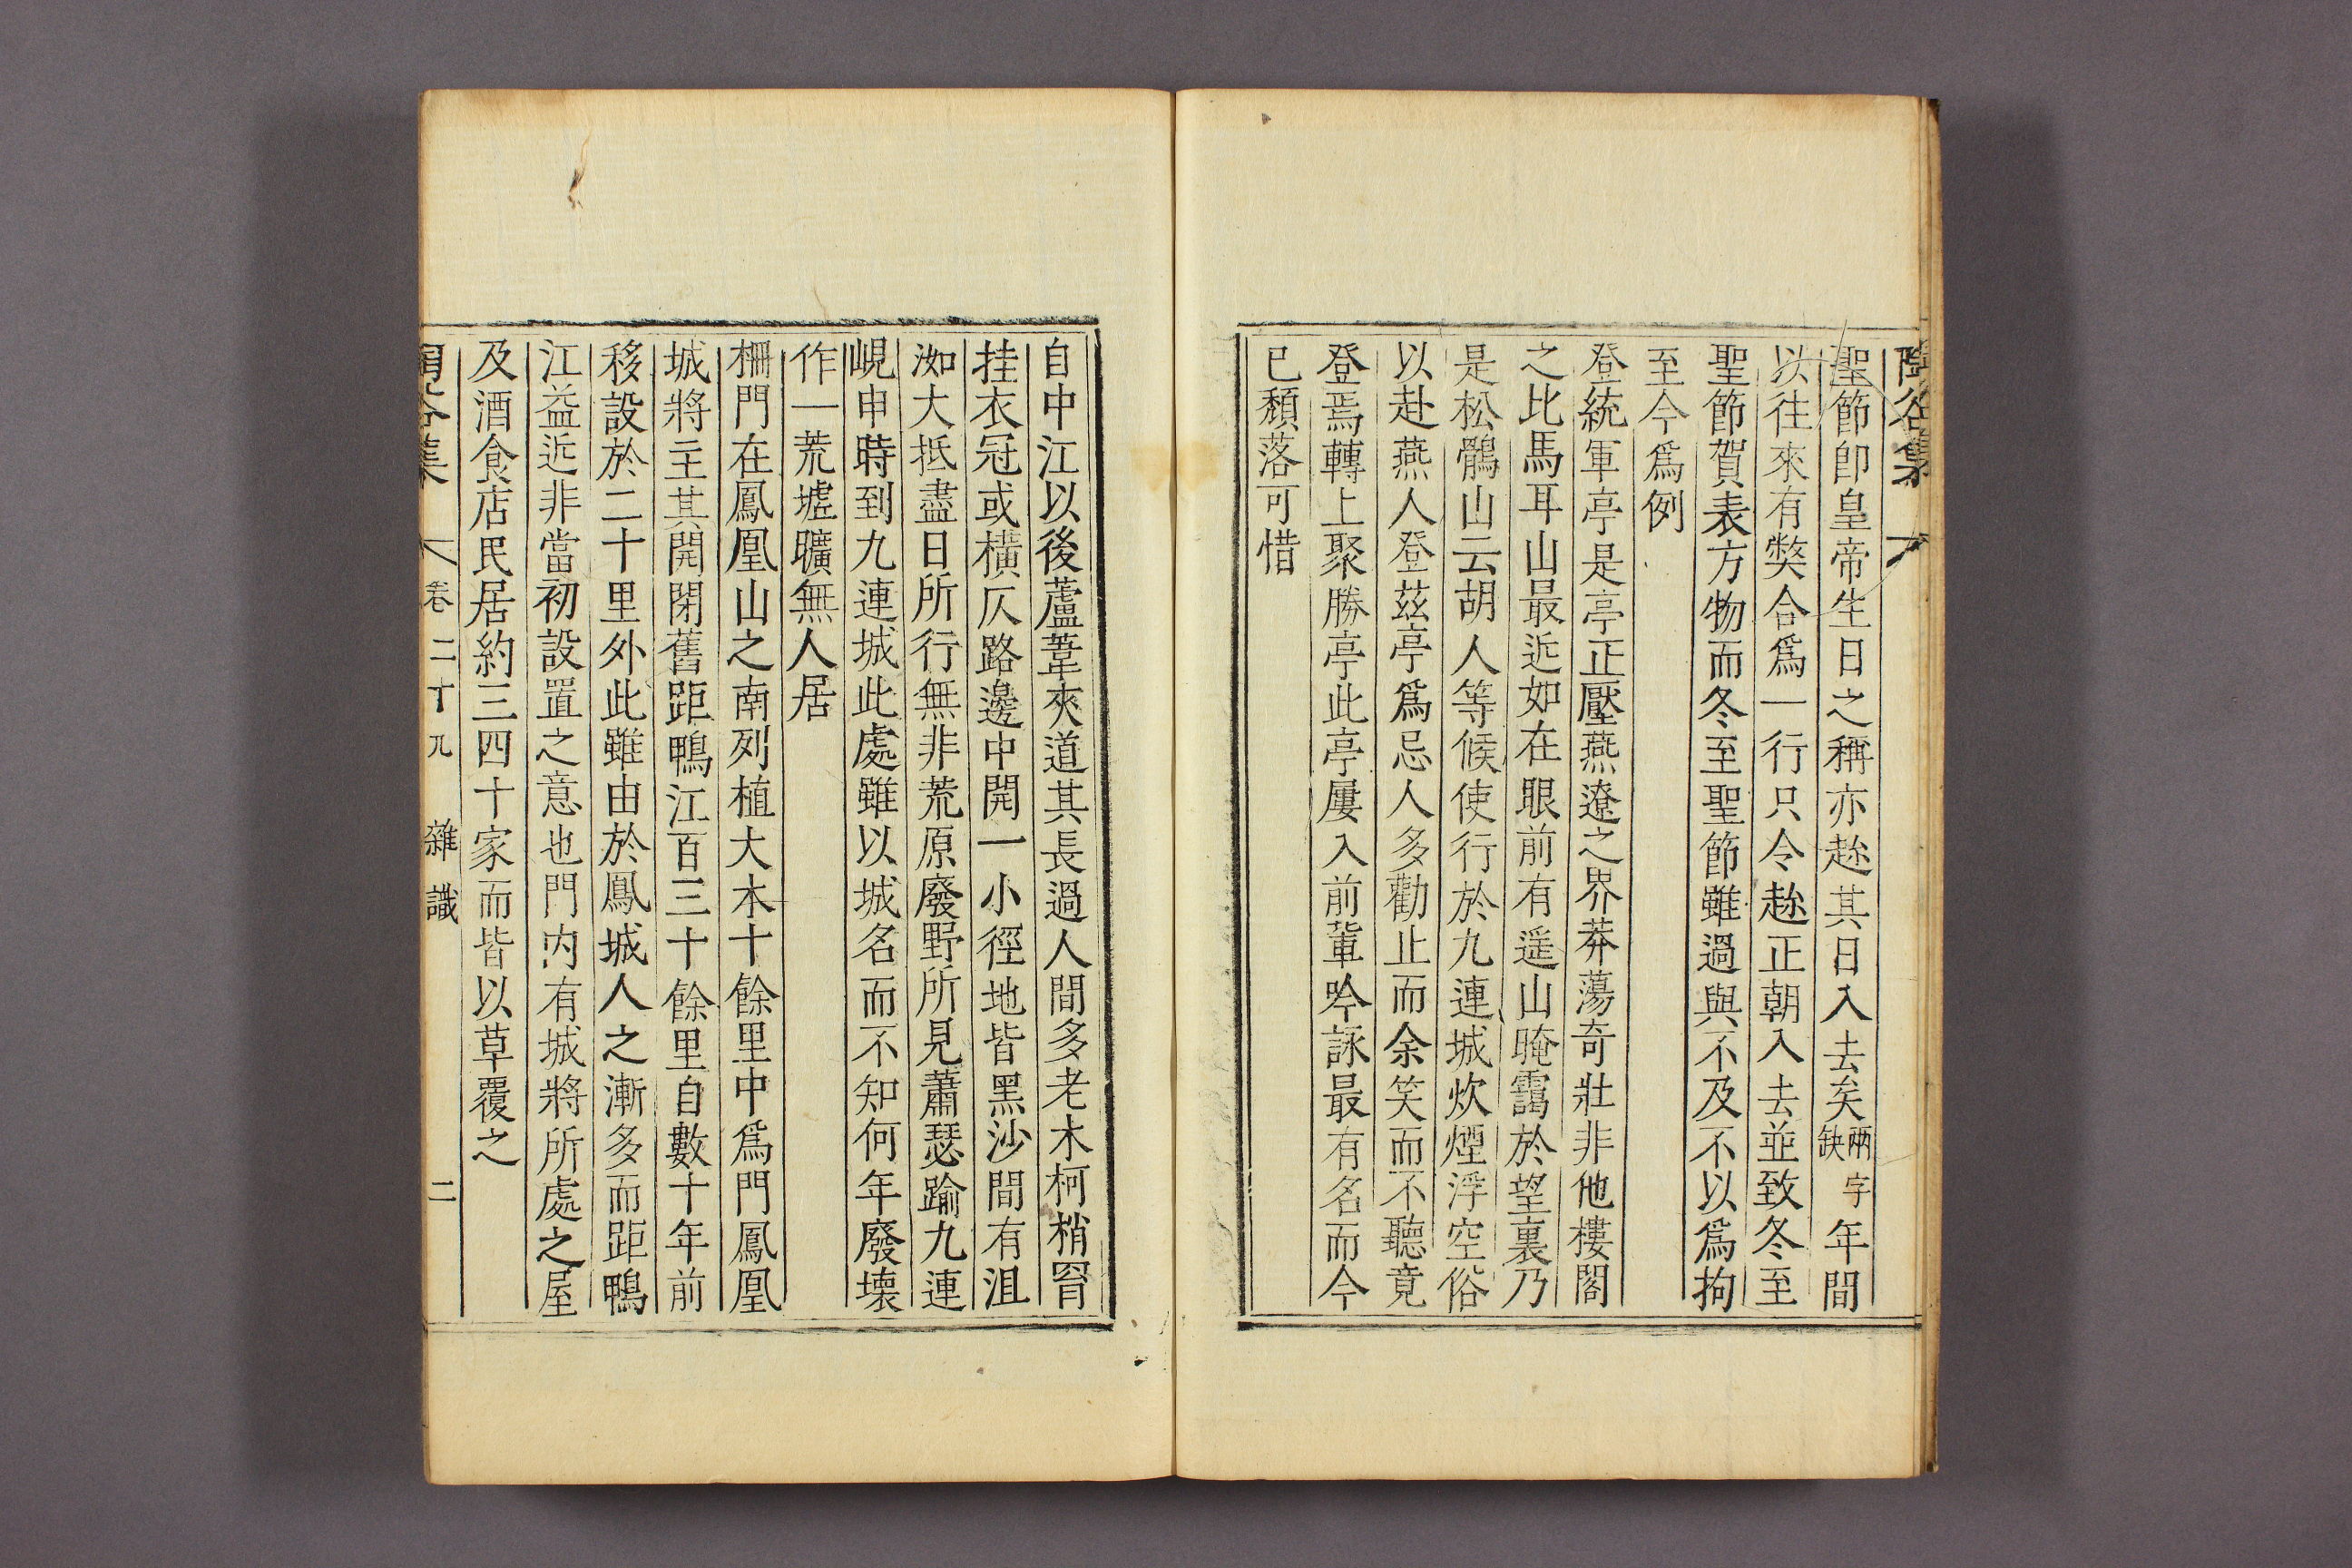 聖節卽皇帝生日之稱亦趂其日入去矣兩字缺年間
以徃來有獘合爲一行只令趂正朝入去並致冬至
聖節賀表方物而冬至聖節雖過與不及不以爲拘
至今爲例
登統軍亭是亭正壓燕遼之界莽蕩奇壯非他樓閣
之比馬耳山最近如在眼前有遥山晻靄於望裏乃
是松鶻山云胡人等候使行於九連城炊煙浮空俗
以赴燕人登茲亭爲忌人多勸止而余笑而不聽竟
登焉轉上聚勝亭此亭屢入前軰吟詠最有名而今
已頹落可惜
自中江以後蘆葦夾道其長過人間多老木柯梢罥
挂衣冠或橫仄路邊中開一小徑地皆黑沙間有沮
洳大抵盡日所行無非荒原廢野所見蕭瑟踰九連
峴申時到九連城此處雖以城名而不知何年廢壞
作一荒墟曠無人居
柵門在鳳凰山之南列植大木十餘里中爲門鳳凰
城將主其開閉舊距鴨江百三十餘里自數十年前
移設於二十里外此雖由於鳳城人之漸多而距鴨
江益近非當初設置之意也門內有城將所處之屋
及酒食店民居約三四十家而皆以草覆之
卷二十九 雜識 二